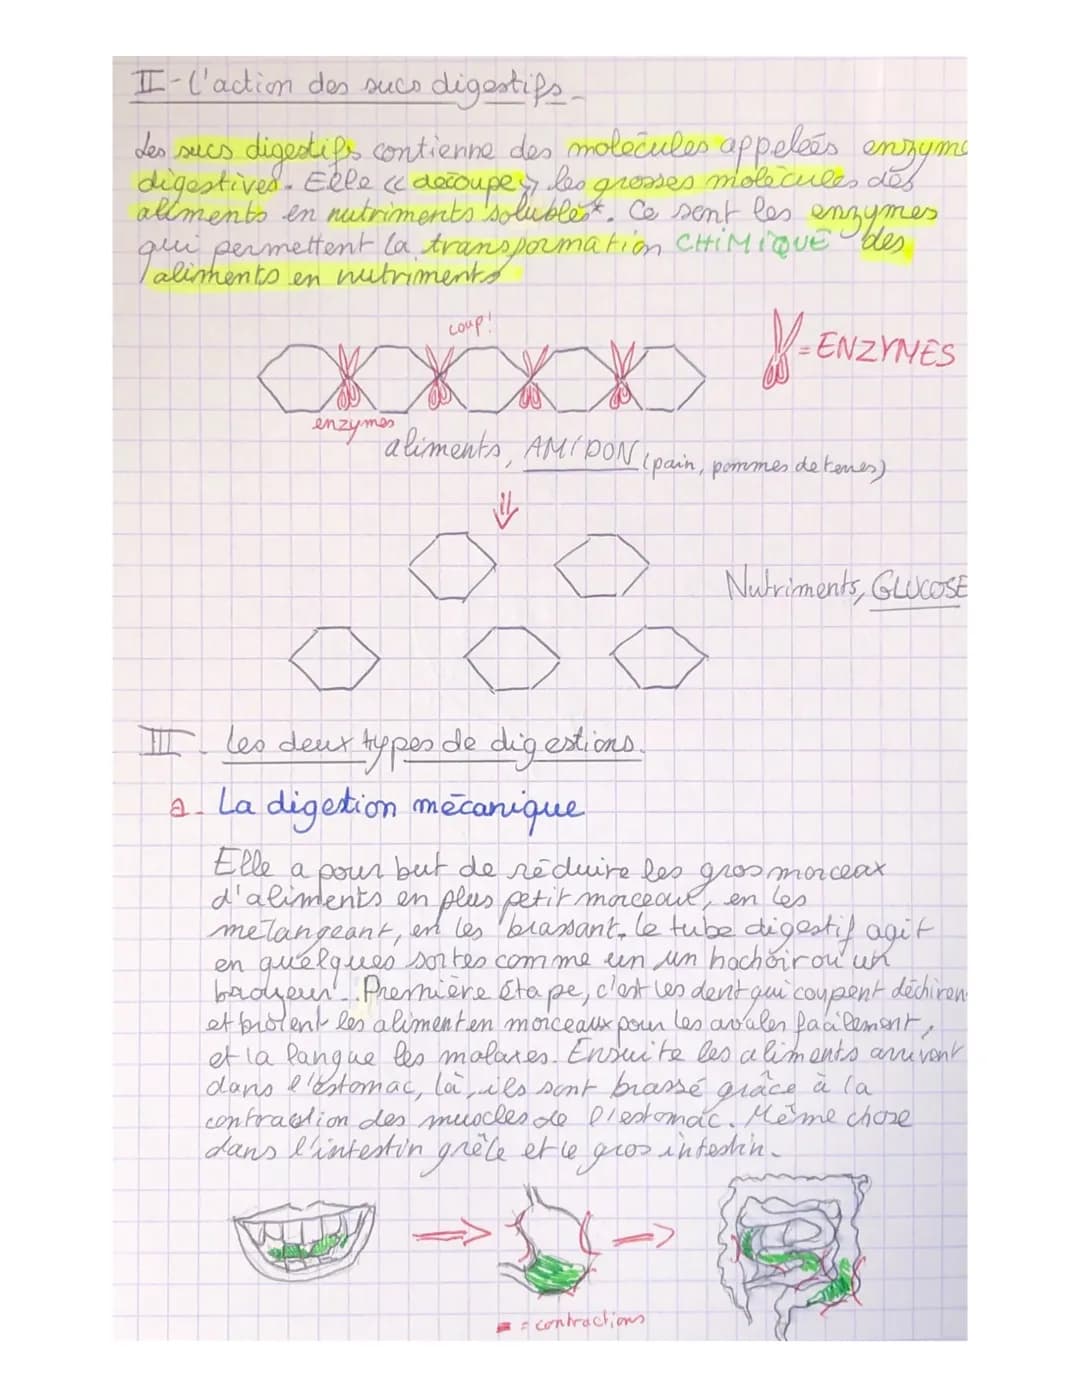 II - L'action des sucs digestifs.
Les sucs digestifs contienne des molécules appeleés enzyme
digestives. Elle << découpe >> les grosses molécules des
aliments en nutriments solubles*. Ce sont les enzymes
qui permettent la transformation CHIMIQUE des
aliments en nutriments
coup!
= ENZYMES
enzymes
aliments, AMIDON (pain, pommes de terres)
Nutriments, GLUCOSE
III - Les deux types de digestions.
a - La digestion mécanique
Elle a pour but de réduire les gros morceax
d'aliments en plus petit morceaux, en les
mélangeant, en les brassant. Le tube digestif agit
en quelques sortes comme un un hachoir ou un
broyeur. Première étape, c'est les dent qui coupent déchiren
et broient les aliment en morceaux pour les avaler facilement,
et la langue les malaxes. Ensuite les aliments arrivent
dans l'estomac, là, ils sont brassé grâce à la
contraction des muscles de l'estomac. Même chose
dans l'intestin grêle et le gros intestin.
= contractions